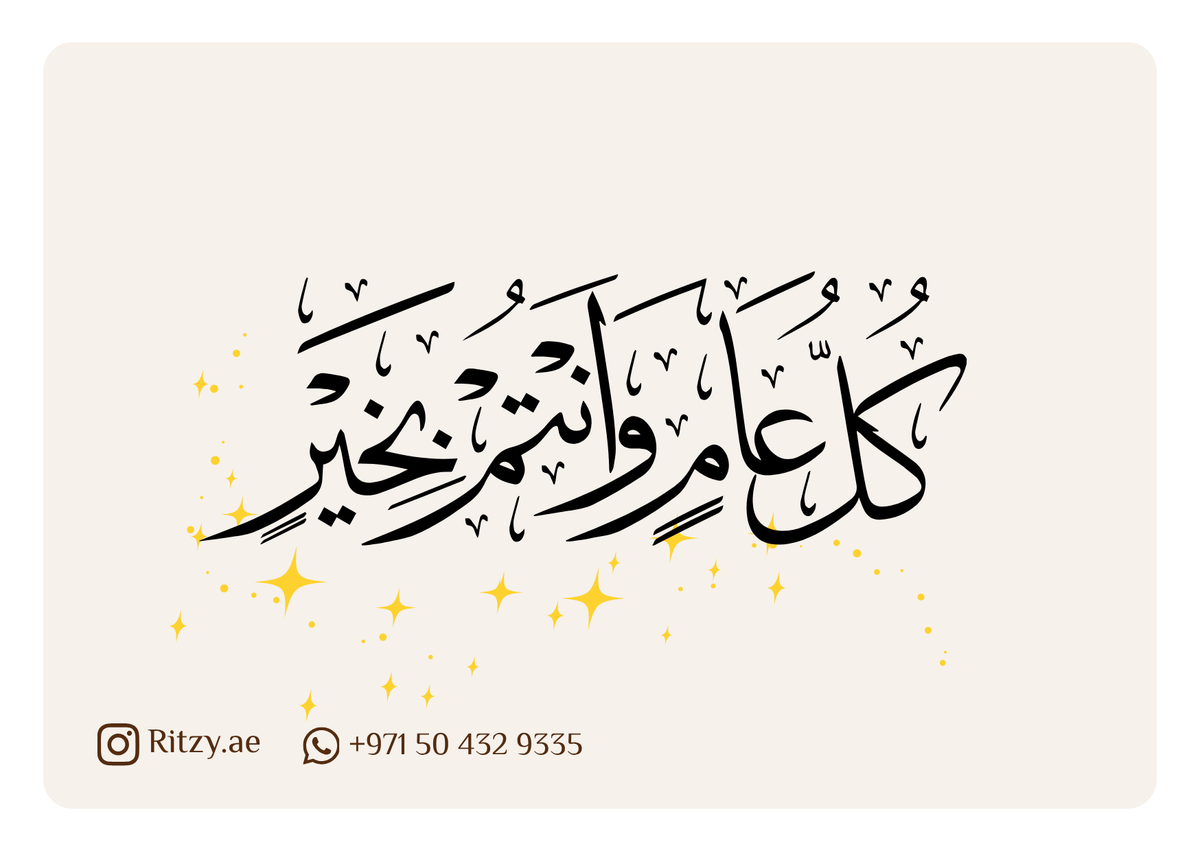 كُلُّ عَامٍ وَانْتُمْ بِخَيْرٍ
Ritzy.ae +971 50 432 9335